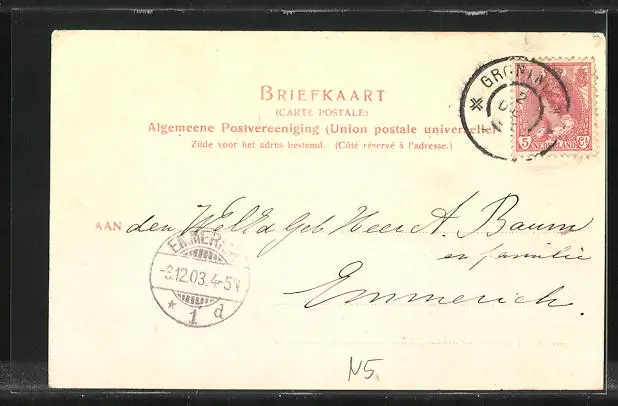 BRIEFKAART
(CARTE POSTALE)
Algemeene Postvereeniging (Union postale universelle)
Zijde voor het adres bestemd. (Côté réservé à l'adresse.)
GRONIN
2
5 NEDERLAND Ct
AAN den WelEd Geb Heer A. Baum
en familie
Emmerich.
EMMERICH
-3.12.03.4-5N
* 1 d
N5